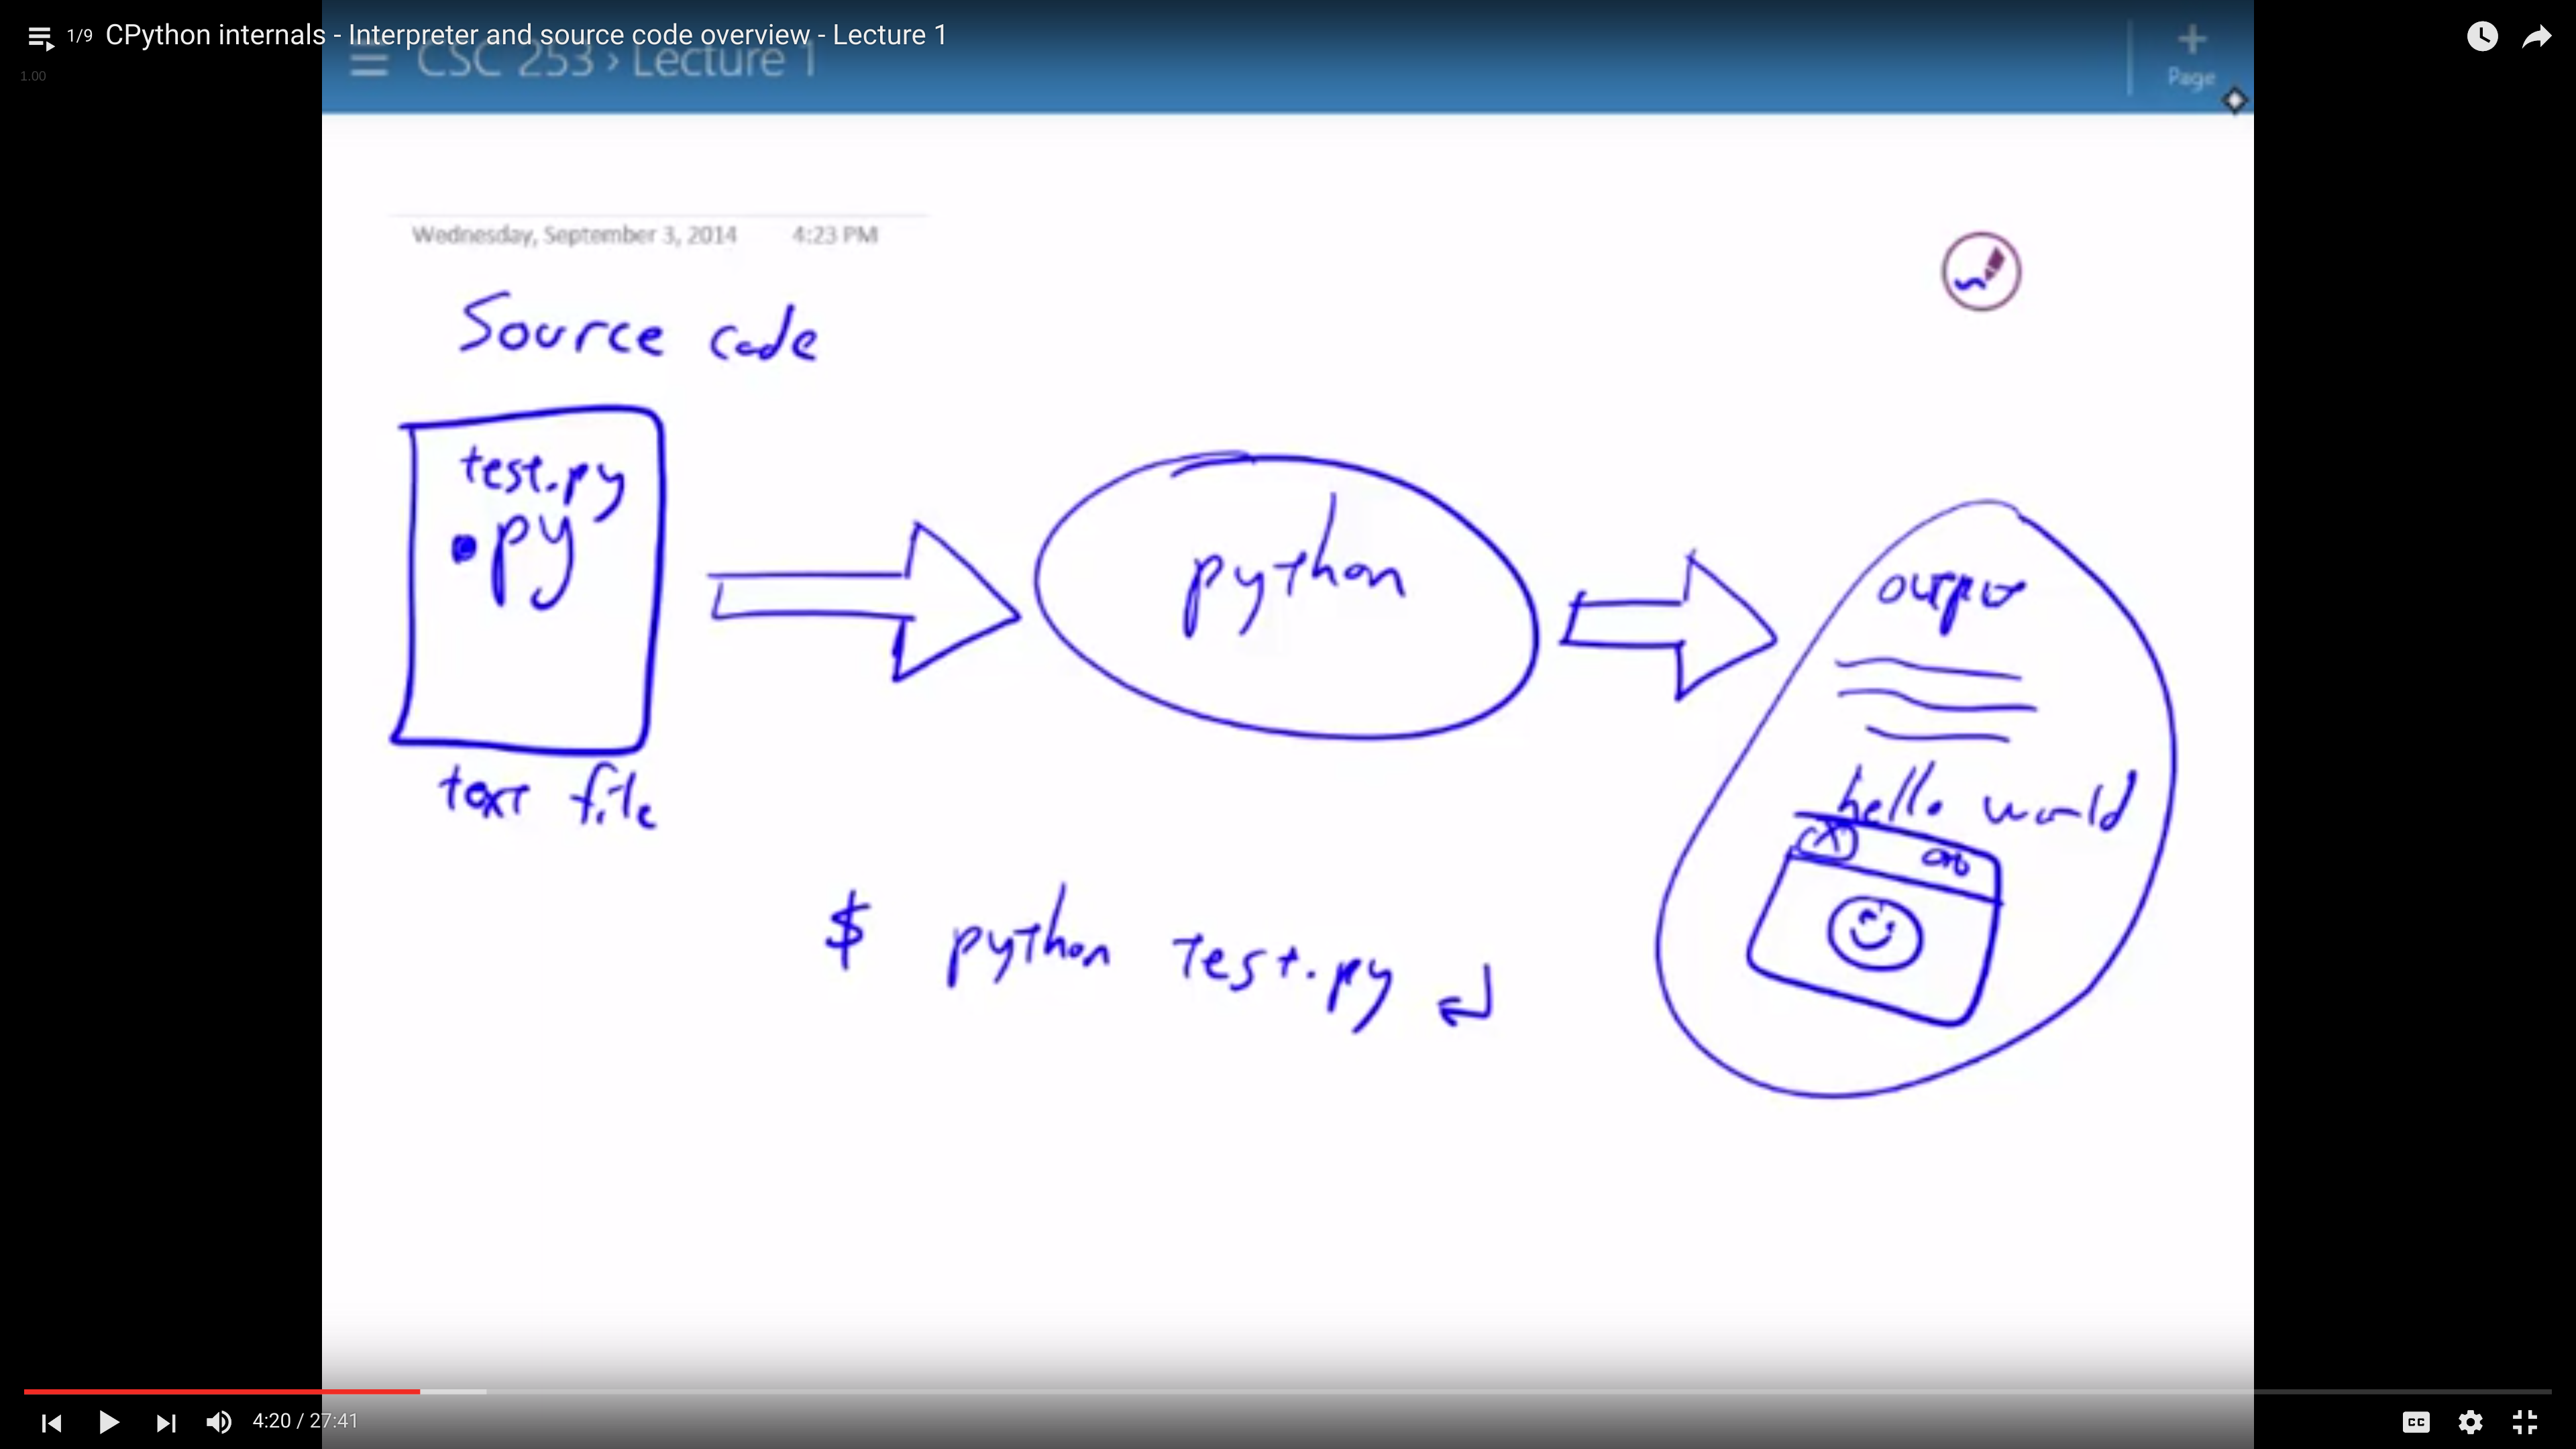 1/9 CPython internals - Interpreter and source code overview - Lecture 1
1.00
CSC 253 › Lecture 1
Page
Wednesday, September 3, 2014 4:23 PM
Source code
test.py
.py
text file
python
output
hello world
$ python test.py ↵
4:20 / 27:41
CC